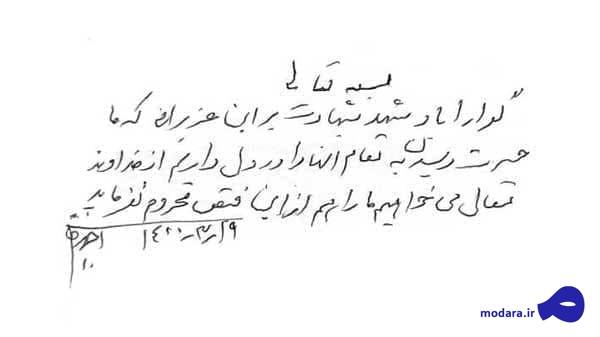 بسمه تعالی
گوارا باد شهد شهادت بر این عزیزانی که ما
حسرت رسیدن به مقام آنها را در دل داریم از خداوند
متعال می خواهیم ما را هم از این فیض محروم نفرماید
۱۴۰۰/۳/۲۹
modara.ir